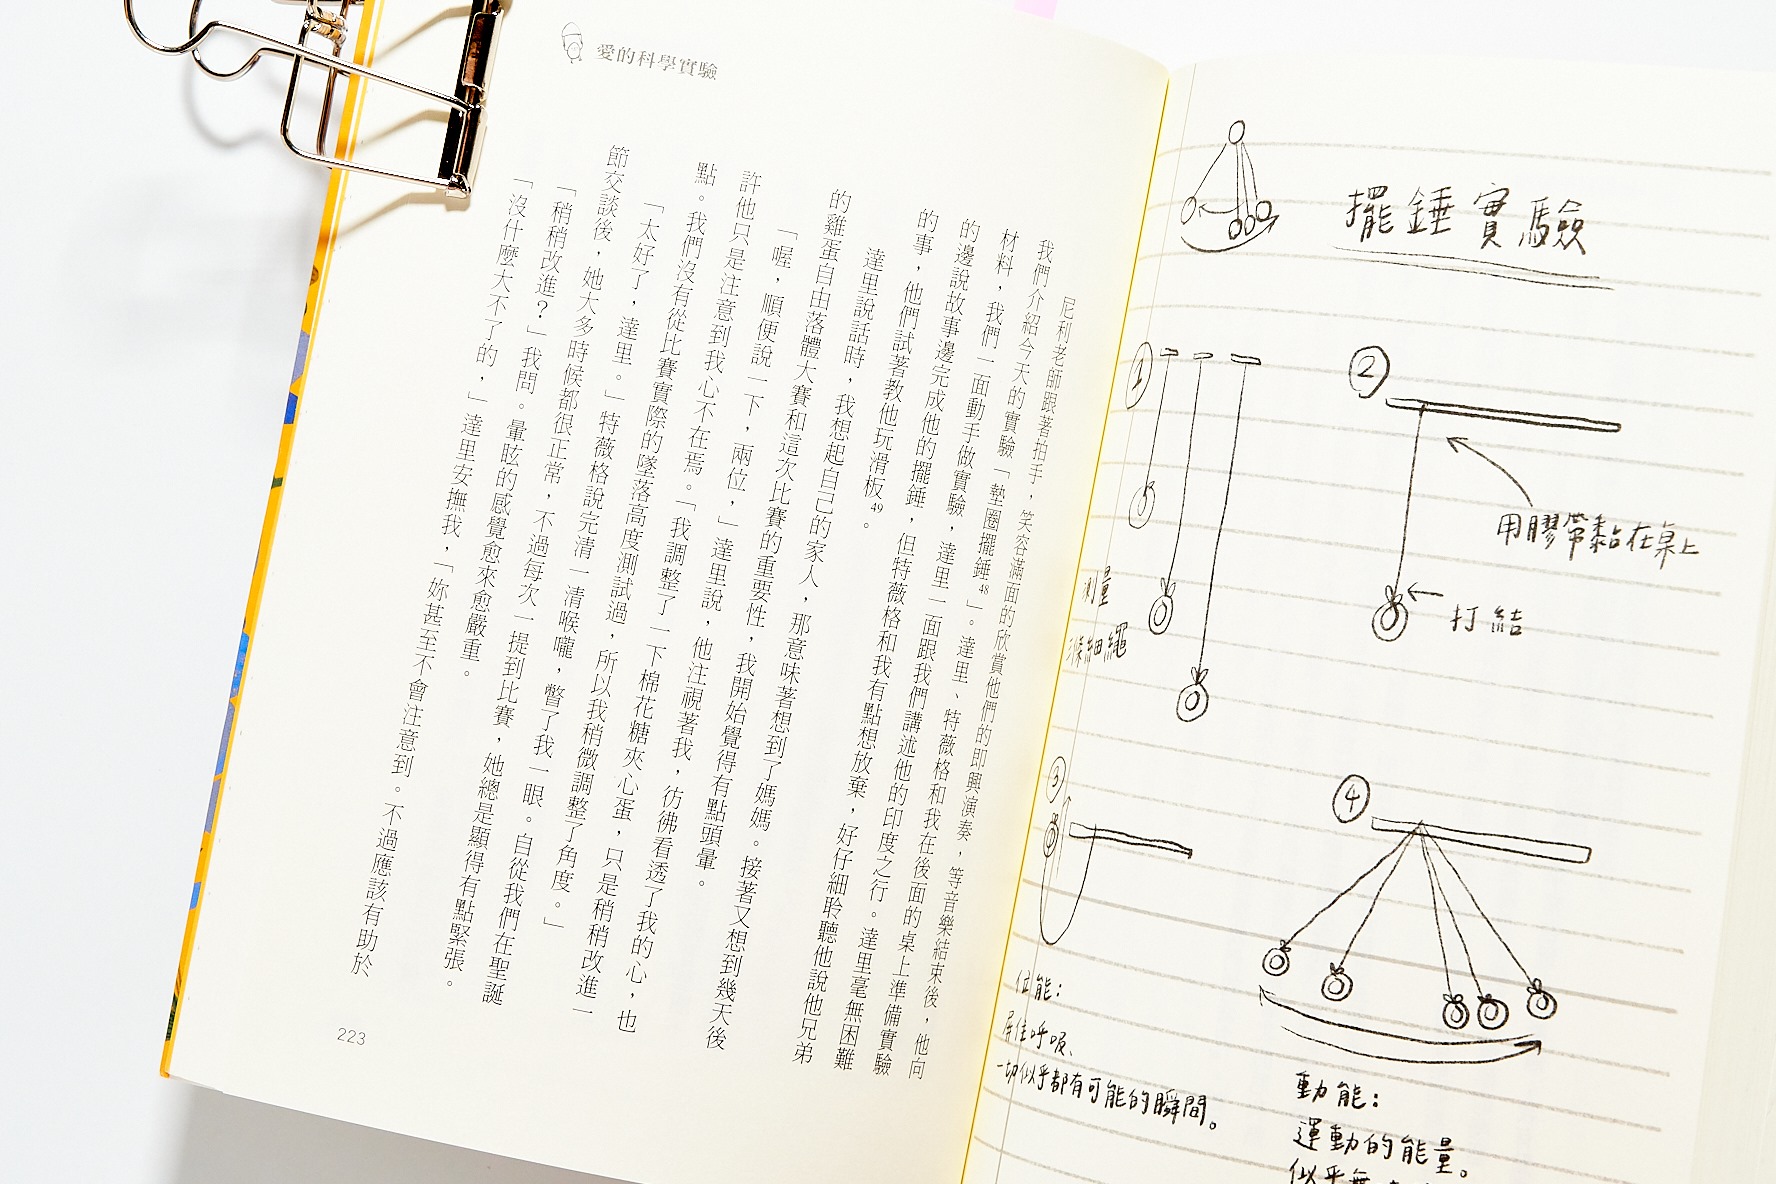 愛的科學實驗
尼利老師跟著拍手，笑容滿面的欣賞他們的即興演奏，等音樂結束後，他向
我們介紹今天的實驗「墊圈擺錘48」。達里、特薇格和我在後面的桌上準備實驗
材料，我們一面動手做實驗，達里一面跟我們講述他的印度之行。達里毫無困難
的邊說故事邊完成他的擺錘，但特薇格和我有點想放棄，好仔細聆聽他說他兄弟
的事，他們試著教他玩滑板49。
達里說話時，我想起自己的家人，那意味著想到了媽媽。接著又想到幾天後
的雞蛋自由落體大賽和這次比賽的重要性，我開始覺得有點頭暈。
「喔，順便說一下，兩位，」達里說，他注視著我，彷彿看透了我的心，也
許他只是注意到我心不在焉。「我調整了一下棉花糖夾心蛋，只是稍稍改進一
點。我們沒有從比賽實際的墜落高度測試過，所以我稍微調整了角度。」
「太好了，達里。」特薇格說完清一清喉嚨，瞥了我一眼。自從我們在聖誕
節交談後，她大多時候都很正常，不過每次一提到比賽，她總是顯得有點緊張。
「稍稍改進？」我問。暈眩的感覺愈來愈嚴重。
「沒什麼大不了的，」達里安撫我，「妳甚至不會注意到。不過應該有助於
223
擺錘實驗
①
測量
細繩
②
用膠帶黏在桌上
打結
③
位能：
屏住呼吸、
一切似乎都有可能的瞬間。
④
動能：
運動的能量。
似乎無